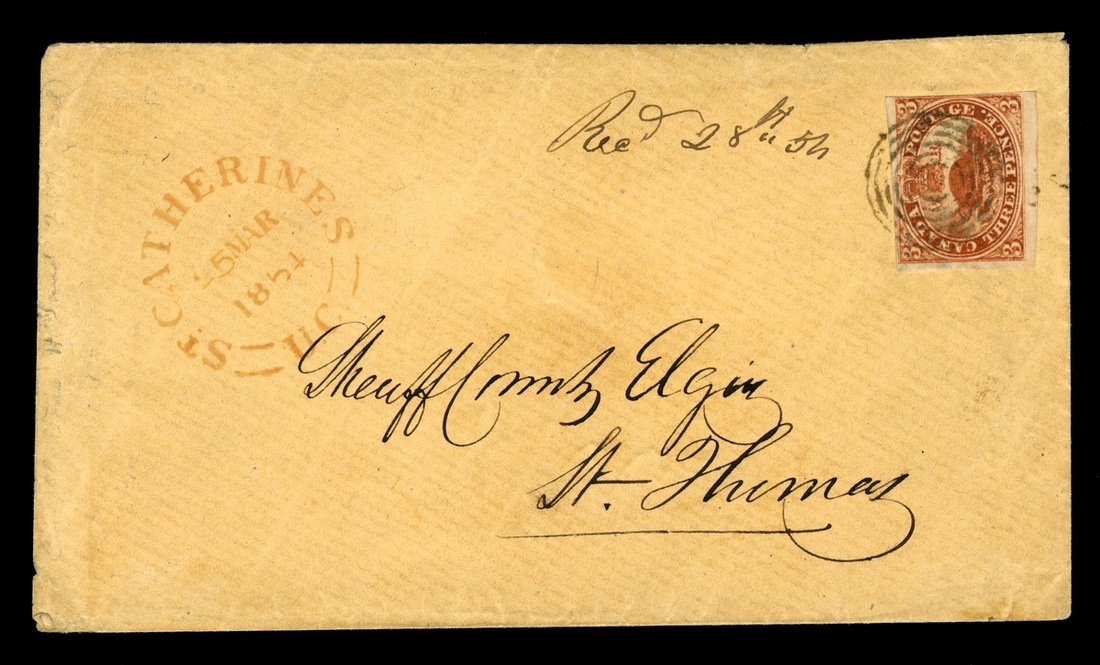 Recd 28th 54
CANADA POSTAGE. THREE PENCE.
3 3 3 3
ST CATHERINES
MAR
1854
U.C
Sheriff County Elgin
St. Thomas